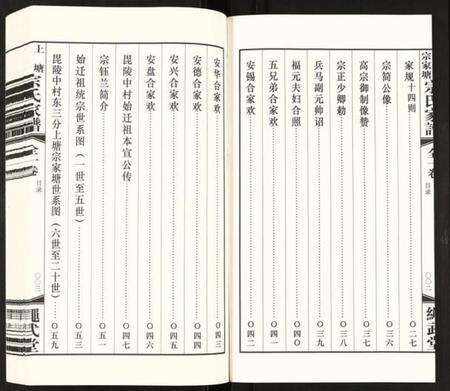 宗家塘宗氏家譜
全一卷
目录
〇〇二
繩武堂
家规十四则……〇二七
宗简公像
高宗御制像赞
宗正少卿勅……〇三八
兵马副元帅诏……〇三九
福元夫妇合照……〇四〇
五兄弟合家欢……〇四一
安锡合家欢……〇四二
安华合家欢……〇四三
安德合家欢……〇四四
安兴合家欢……〇四五
安盘合家欢……〇四六
毘陵中村始迁祖本宣公传……〇四七
宗钰兰简介……〇五一
始迁祖统宗世系图（一世至五世）
毘陵中村东三分上塘宗家塘世系图（六世至二十世）……〇五九
上塘宗氏家譜
全一卷
目录
〇〇三
繩武堂